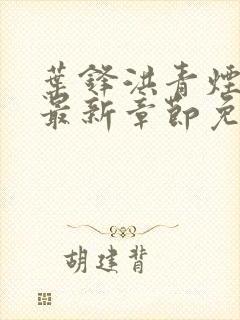 葉鋒洪青煙
最新章節免
胡建背